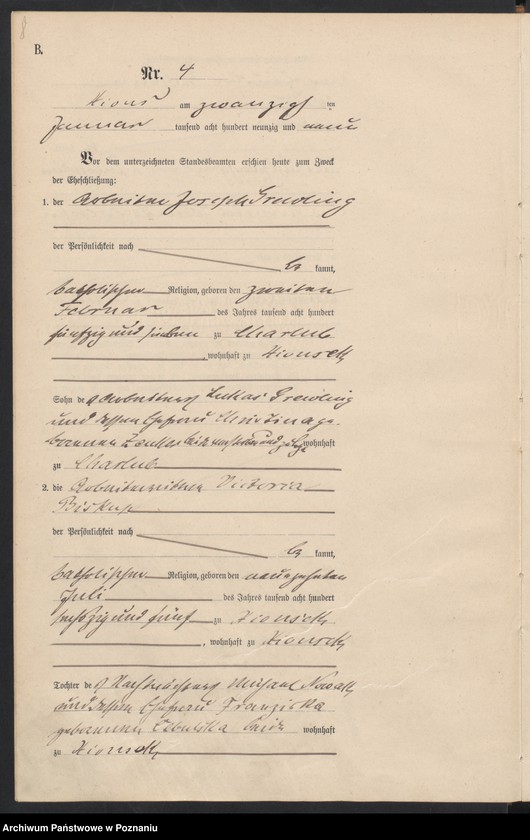 B.
Nr. 4
Xions am zwanzigsten
Januar tausend acht hundert neunzig und neun
Vor dem unterzeichneten Standesbeamten erschien heute zum Zweck
der Eheschließung:
1. der Arbeiter Joseph
der Persönlichkeit nach
kannt,
katholischer Religion, geboren den zweiten
Februar des Jahres tausend acht hundert
fünfzig und sieben zu Charlub
, wohnhaft zu Xionsek
Sohn des Arbeiters Lukas
und dessen Ehefrau Christina ge-
borenen wohnhaft
zu Charlub
2. die Arbeiterwittwe Victoria
Biskup
der Persönlichkeit nach
kannt,
katholischer Religion, geboren den neunzehnten
Juli des Jahres tausend acht hundert
sechszig und fünf zu Xionsek
, wohnhaft zu Xionsek
Tochter des Nachtwächters Michael Nowak
und dessen Ehefrau Franziska
geborenen Cebulska beide wohnhaft
zu Xionsek
Archiwum Państwowe w Poznaniu